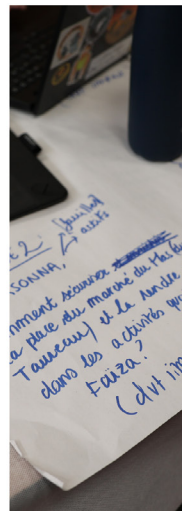 E 2:
[Jaillet]
SONNA,
actifs
mment sécuriser
a place du marché du Mas du
Taureau) et la rendre
dans les activités qu
Faïza?
(dvt im